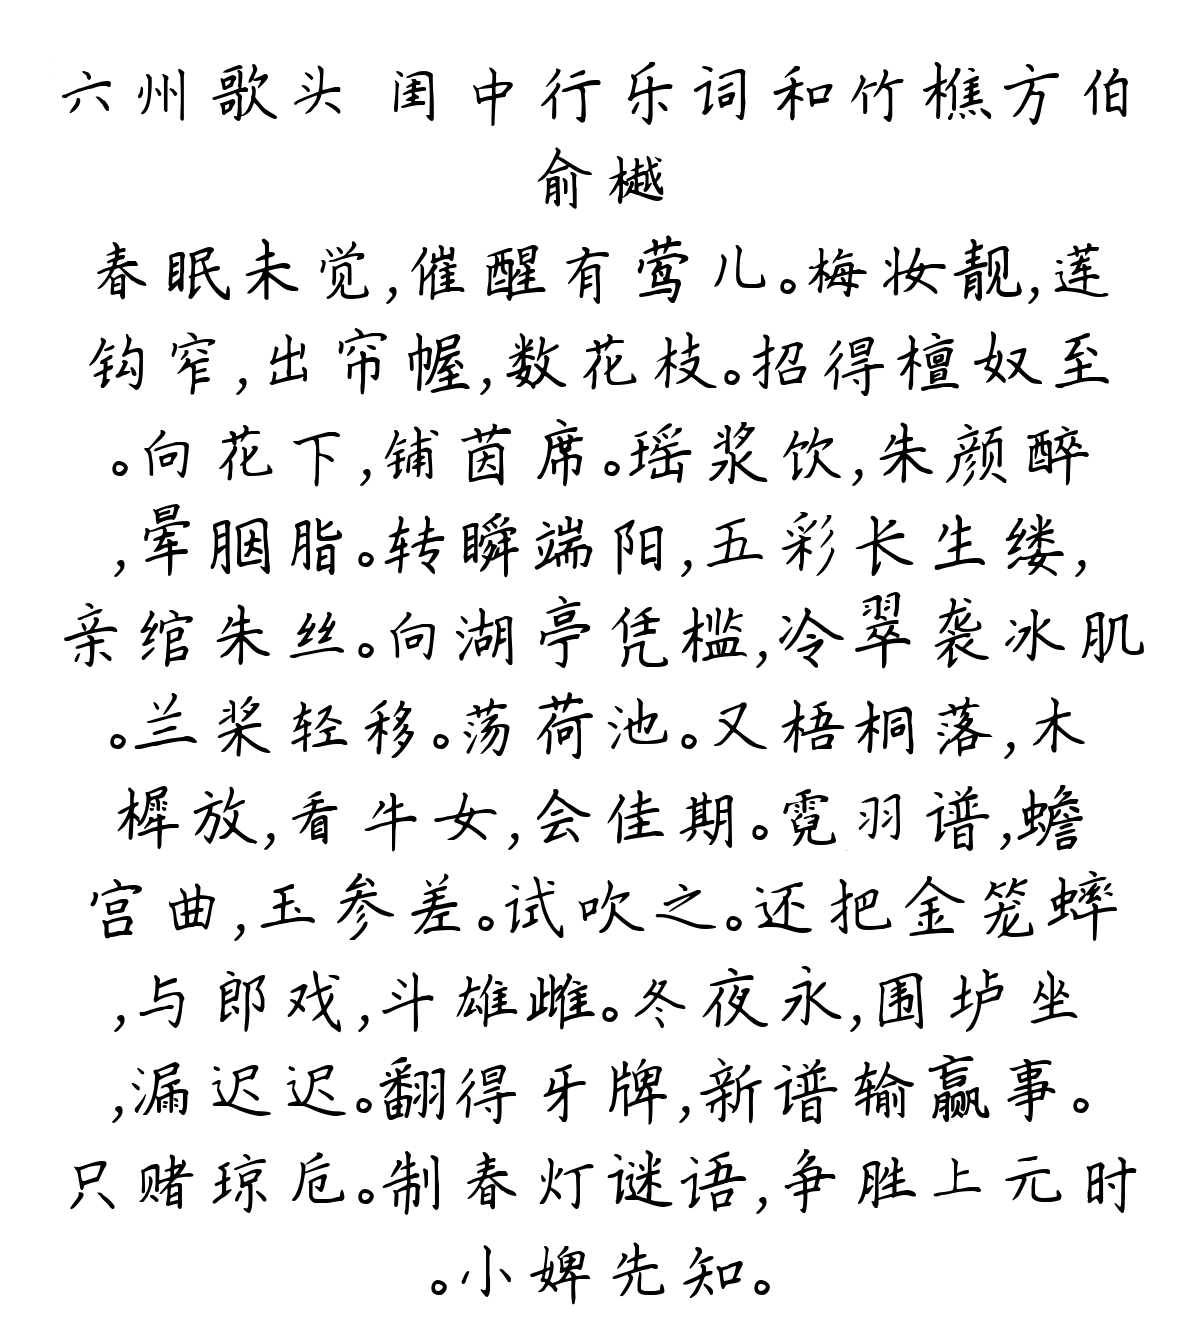 六州歌头 闺中行乐词和竹樵方伯
俞樾
春眠未觉,催醒有莺儿。梅妆靓,莲
钩窄,出帘幄,数花枝。招得檀奴至
。向花下,铺茵席。瑶浆饮,朱颜醉
,晕胭脂。转瞬端阳,五彩长生缕,
亲绾朱丝。向湖亭凭槛,冷翠袭冰肌
。兰桨轻移。荡荷池。又梧桐落,木
樨放,看牛女,会佳期。霓羽谱,蟾
宫曲,玉参差。试吹之。还把金笼蟀
,与郎戏,斗雄雌。冬夜永,围垆坐
,漏迟迟。翻得牙牌,新谱输赢事。
只赌琼卮。制春灯谜语,争胜上元时
。小婢先知。